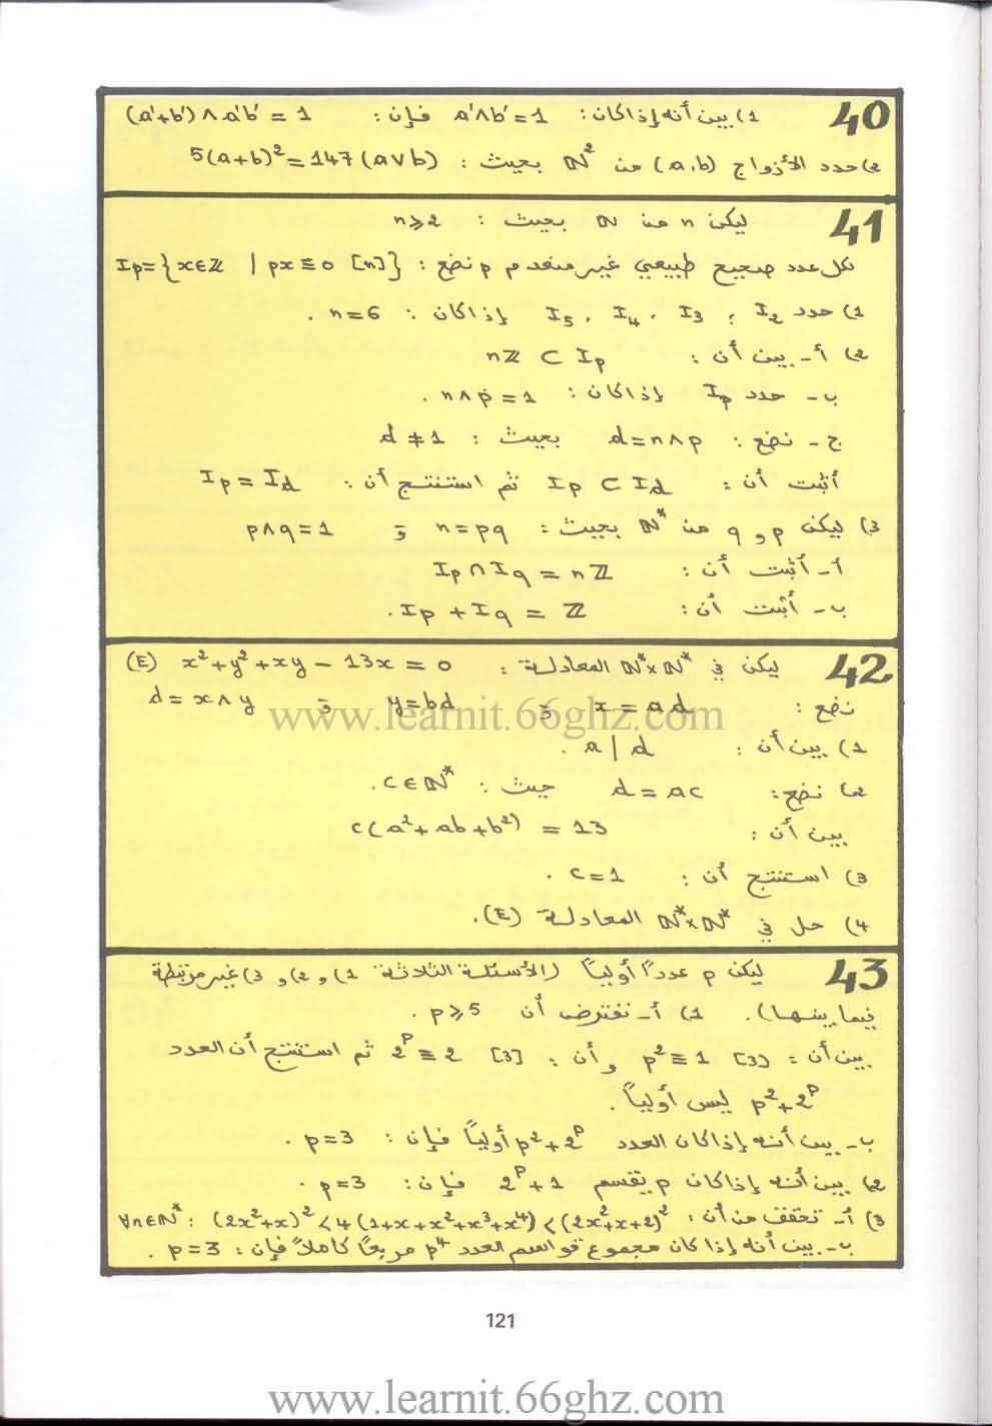 40 1) بين أنه إذا كان: a'∧b' = 1 فإن: (a'+b')∧a'b' = 1
2) حدد الأزواج (a,b) من ℕ² بحيث: 5(a+b)² = 147(a∨b)
41 ليكن n من ℕ بحيث: n⩾2
لكل عدد صحيح طبيعي غير منعدم p نضع: Ip={x∈ℤ | px≡0 [n]}
1) حدد I₂ ; I₃ , I₄ , I₅ إذا كان: n=6 .
2) أ- بين أن: nℤ ⊂ Ip
ب- حدد Ip إذا كان: n∧p=1 .
ج- نضع: d=n∧p بحيث: d≠1
أثبت أن: Ip ⊂ Id ثم استنتج أن: Ip = Id
3) ليكن p و q من ℕ* بحيث: n=pq و p∧q=1
أ- أثبت أن: Ip∩Iq = nℤ
ب- أثبت أن: Ip + Iq = ℤ.
42 ليكن في ℕ*×ℕ* المعادلة: x²+y²+xy-13x=0 (E)
نضع: x=ad و y=bd و d=x∧y
1) بين أن: a|d .
2) نضع: d=ac حيث: c∈ℕ*.
بين أن: c(a²+ab+b²) = 13
3) استنتج أن: c=1 .
4) حل في ℕ*×ℕ* المعادلة (E).
43 ليكن p عدداً أولياً (الأسئلة الثلاثة 1) و 2) و 3) غير مرتبطة
فيما بينها). 1) أ- نفترض أن p⩾5 .
بين أن: p²≡1 [3] وأن: 2^p≡2 [3] ثم استنتج أن العدد
p²+2^p ليس أولياً .
ب- بين أنه إذا كان العدد p²+2^p أولياً فإن: p=3 .
2) بين أنه إذا كان p يقسم 2^p+1 فإن: p=3 .
3) أ- تحقق من أن: ∀n∈ℕ*: (2x²+x)²<4(1+x+x²+x³+x⁴)<(2x²+x+2)²
ب- بين أنه إذا كان مجموع قواسم العدد p⁴ مربعاً كاملاً فإن: p=3 .
www.learnit.66ghz.com
121
www.learnit.66ghz.com